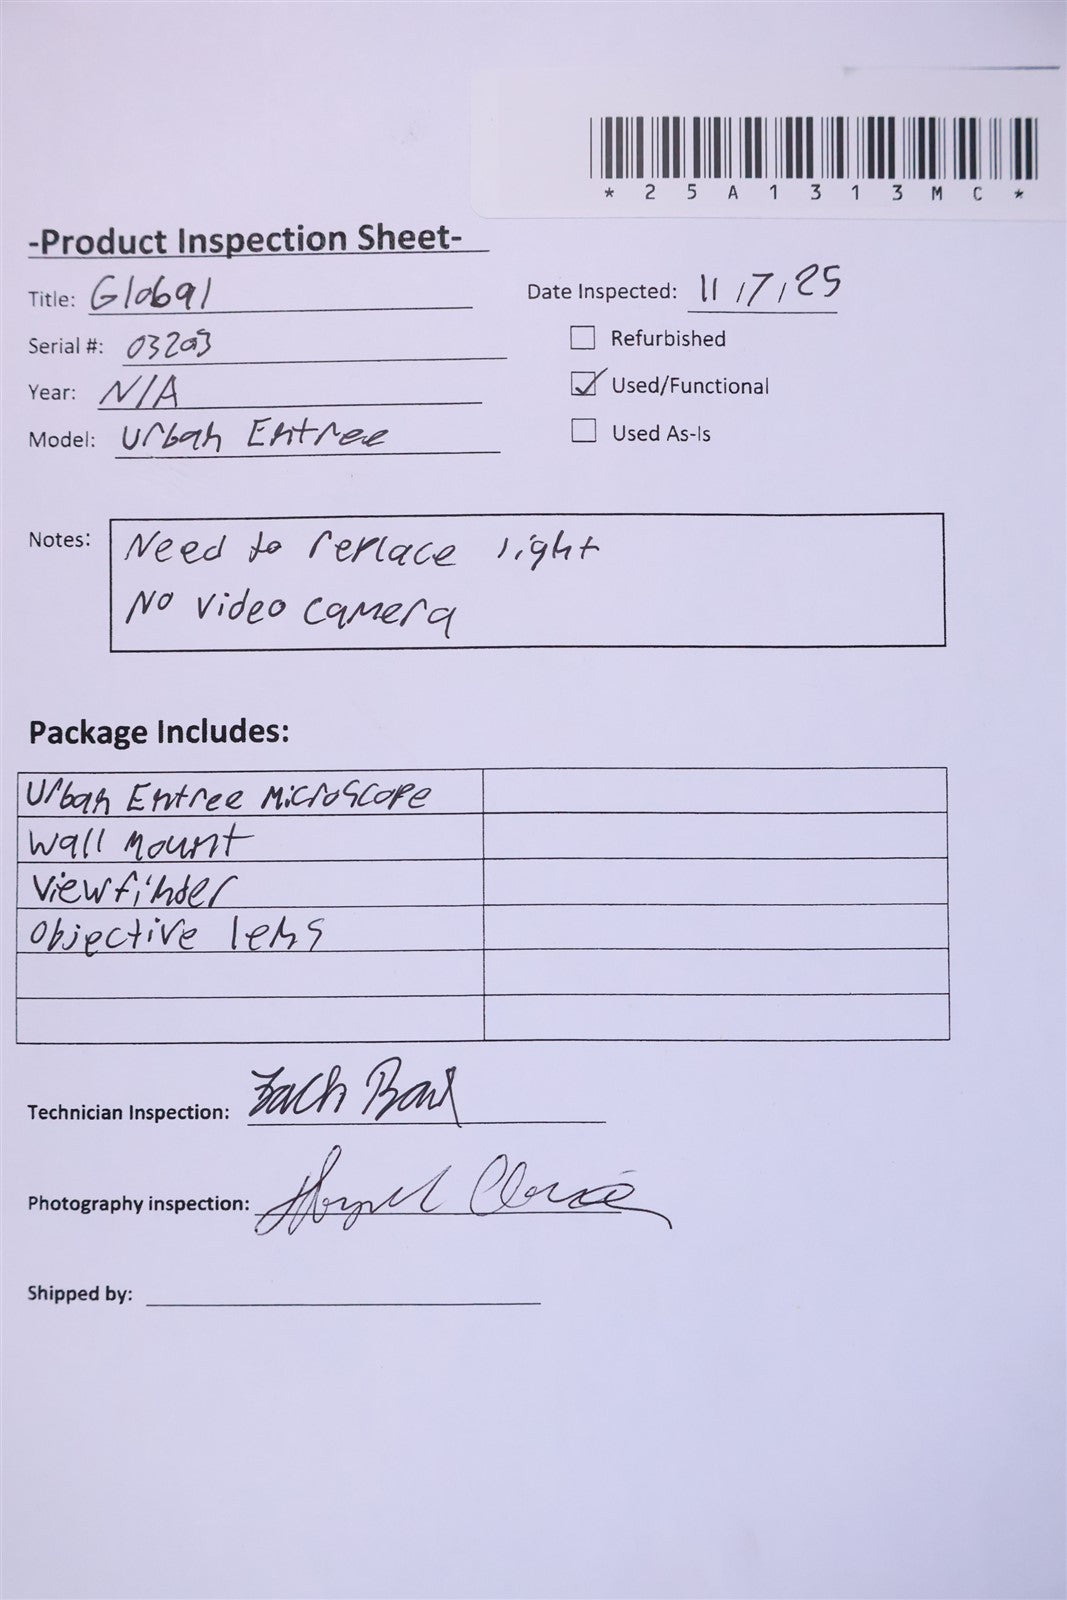 *25A1313MC*
-Product Inspection Sheet-
Title: Global
Date Inspected: 11/7/25
Serial #: 03203
Refurbished
Year: N/A
Used/Functional
Model: Urban Entree
Used As-Is
Notes: Need to replace light
No video camera
Package Includes:
Urban Entree Microscope
Wall Mount
Viewfinder
Objective lens
Technician Inspection: Zach
Photography inspection:
Shipped by: